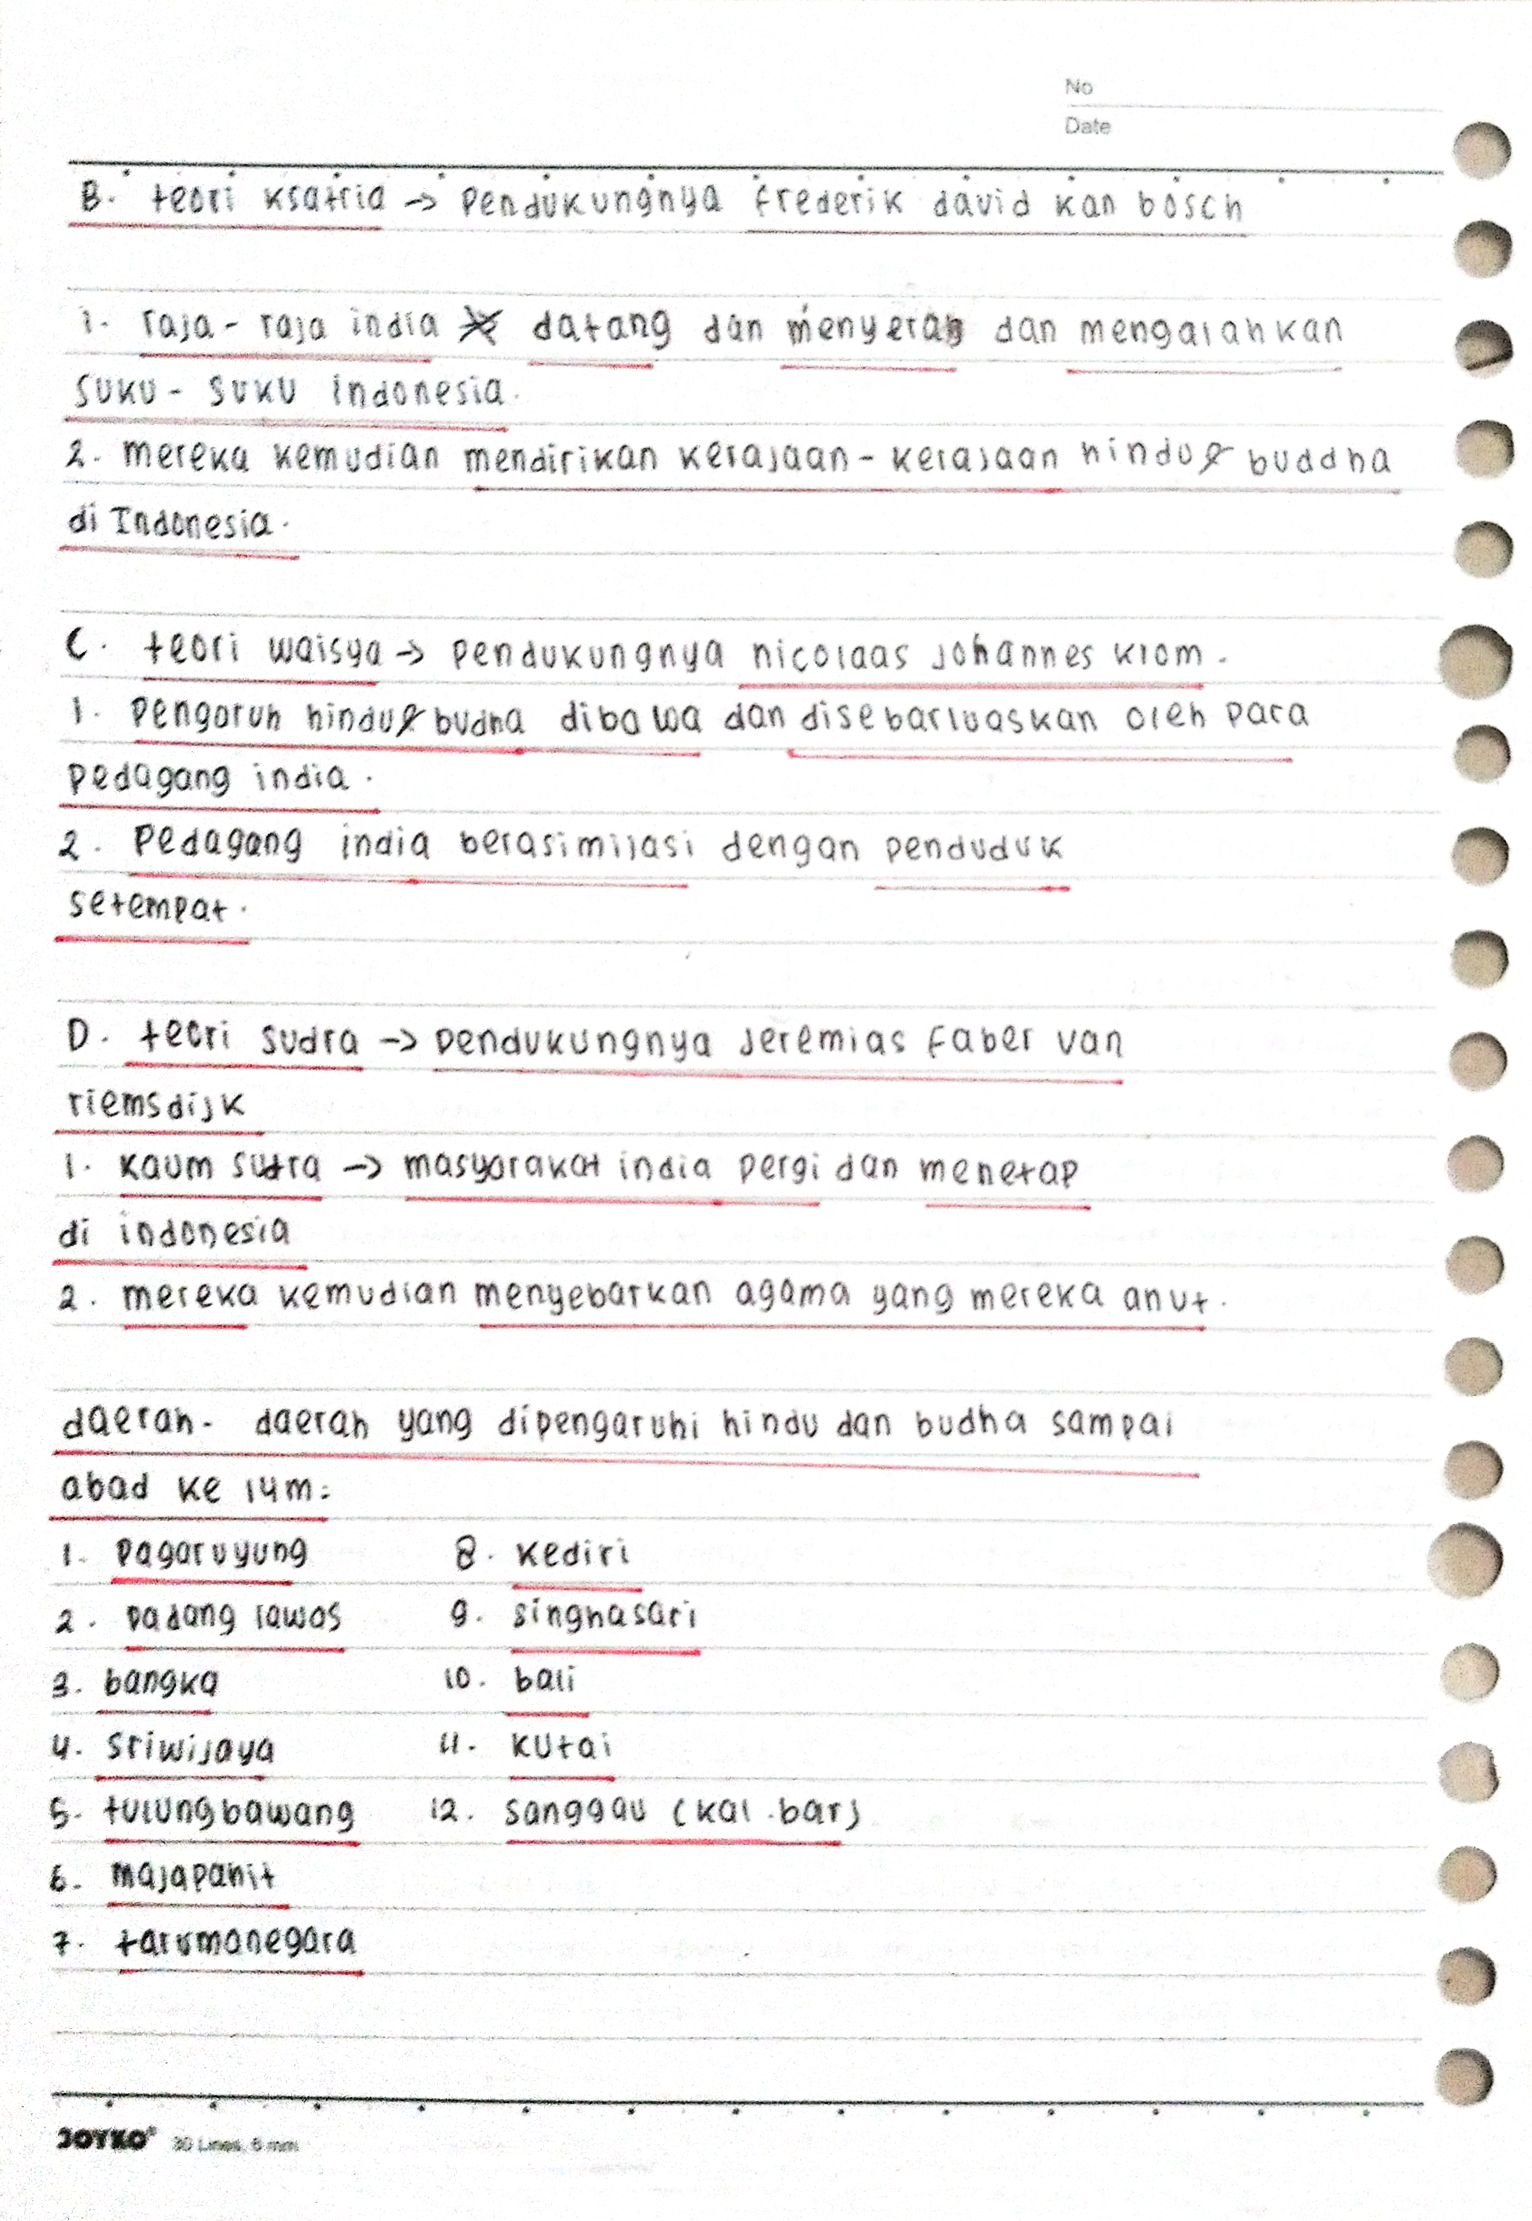 No
Date
B. teori ksatria → pendukungnya frederik david kan bosch
1. raja - raja india datang dan menyerah dan mengalahkan
suku - suku indonesia.
2. mereka kemudian mendirikan kerajaan - kerajaan hindu & buddha
di Indonesia.
C. teori waisya → pendukungnya nicolaas johannes krom.
1. pengaruh hindu & budha dibawa dan disebarluaskan oleh para
pedagang india.
2. pedagang india berasimilasi dengan penduduk
setempat.
D. teori sudra → pendukungnya jeremias faber van
riemsdijk
1. kaum sutra → masyarakat india pergi dan menetap
di indonesia
2. mereka kemudian menyebarkan agama yang mereka anut.
daerah - daerah yang dipengaruhi hindu dan budha sampai
abad ke 14m:
1. pagaruyung 8. kediri
2. padang lawas 9. singhasari
3. bangka 10. bali
4. sriwijaya 11. kutai
5. tulungbawang 12. sanggau (kal.bar)
6. majapahit
7. tarumanegara
JOYKO® 30 Lines, 6 mm